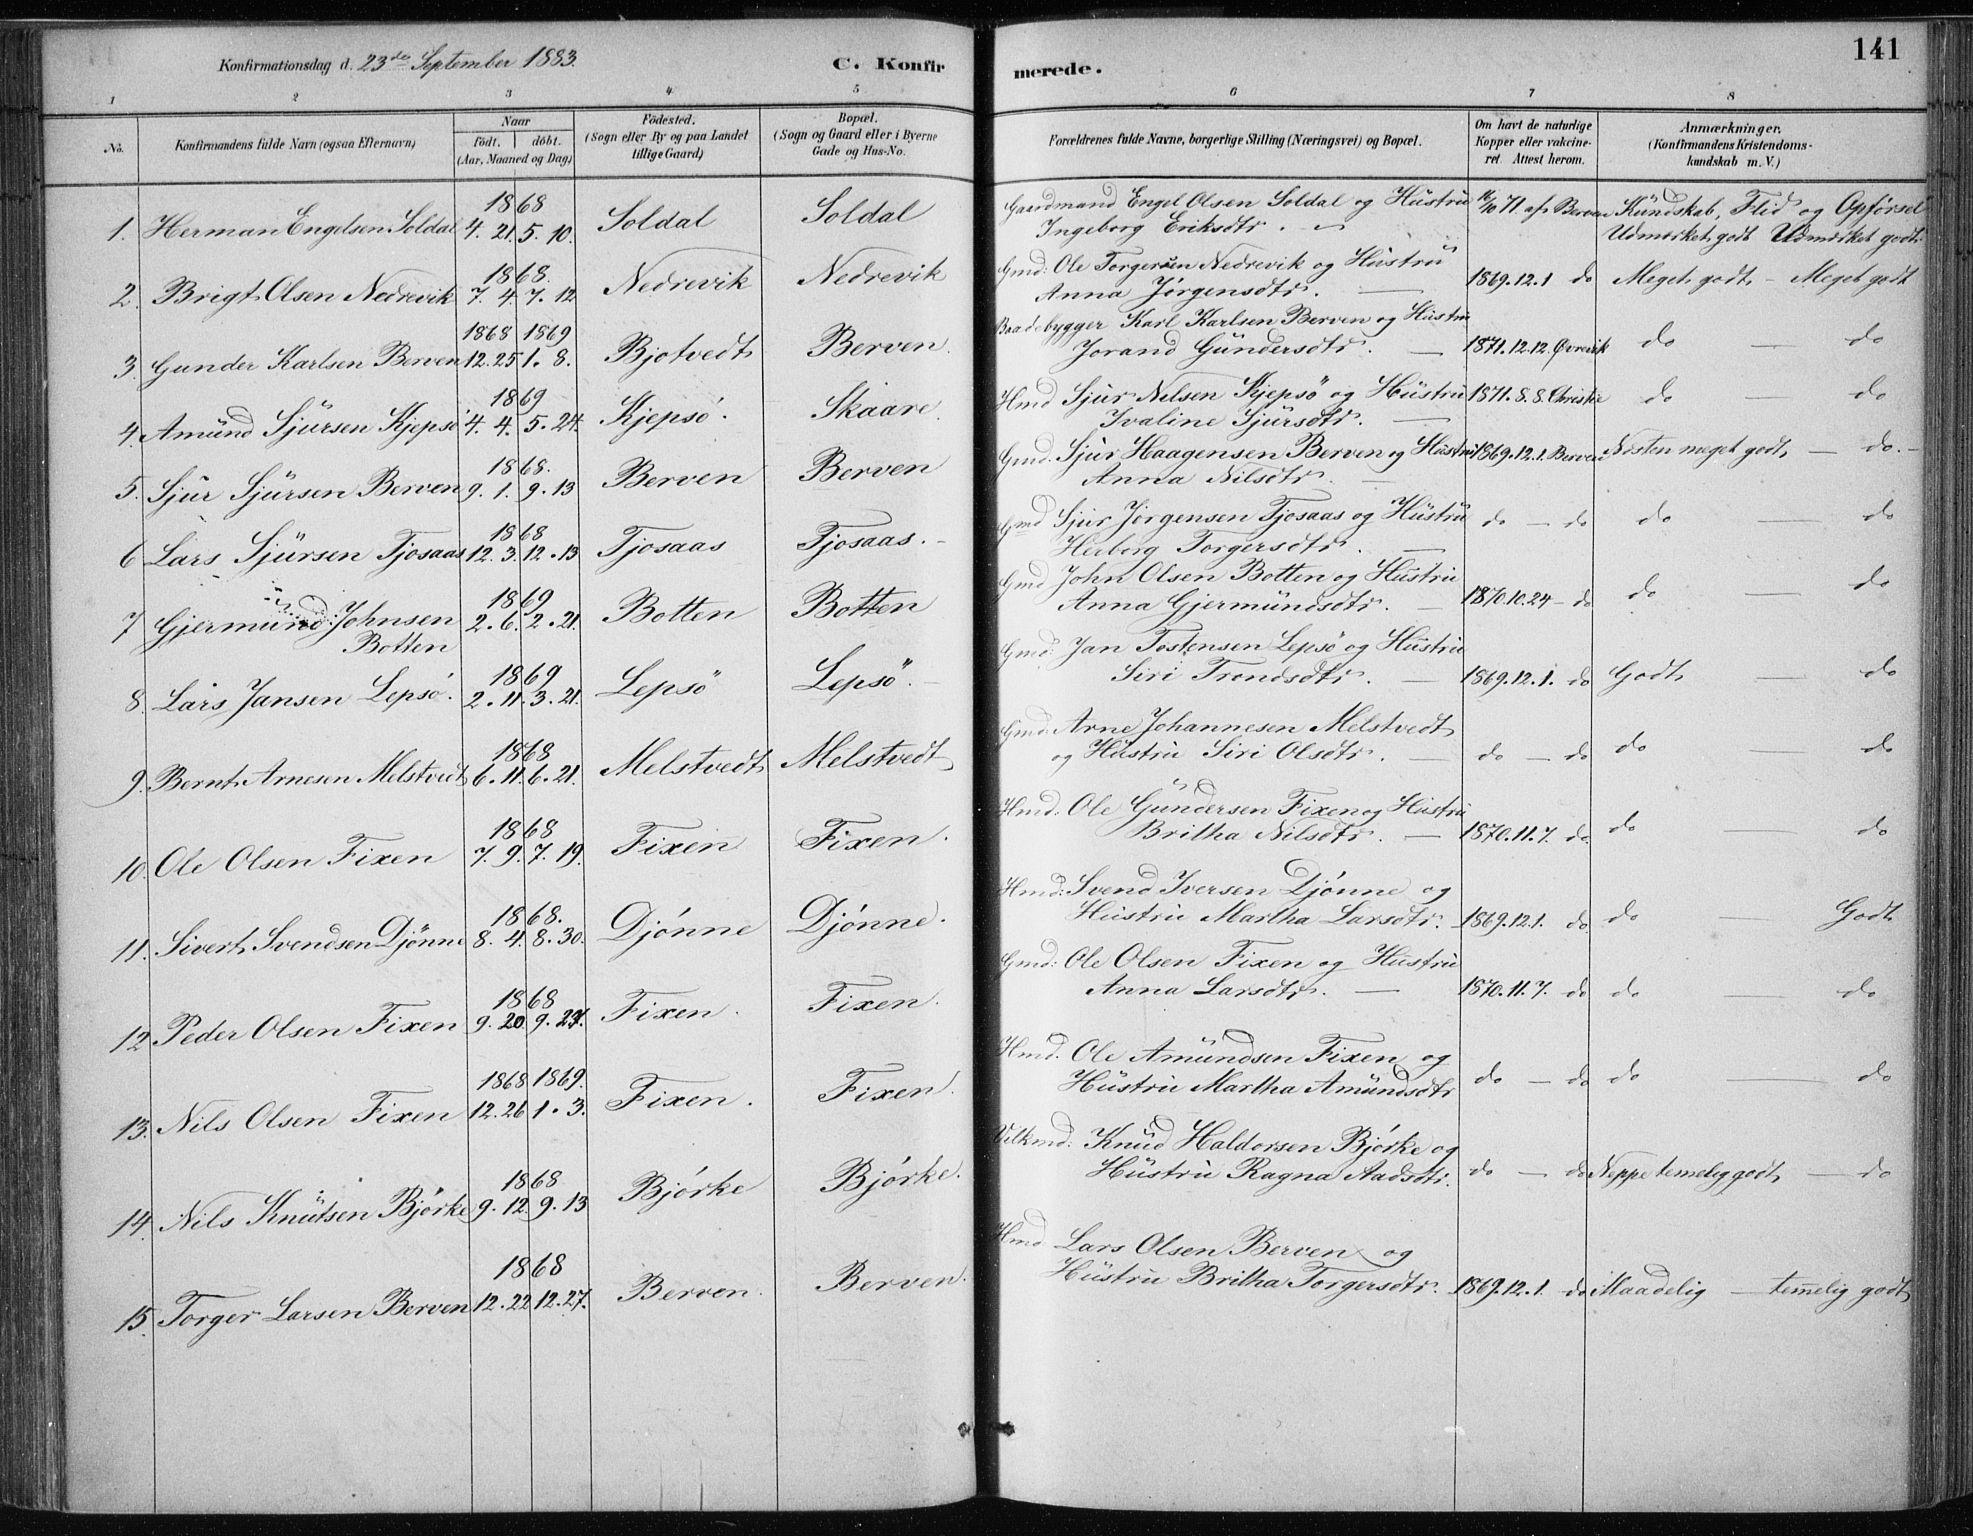 Konfirmationsdag d. 23de September 1883.
C. Konfirmerede.
141
1 2 3 4 5 6 7 8
No.
Konfirmandens fulde Navn (ogsaa Efternavn)
Naar
födt. döbt.
(Aar, Maaned og Dag)
Födested.
(Sogn eller By og paa Landet
tillige Gaard)
Bopæl.
(Sogn og Gaard eller i Byerne
Gade og Hus-No.
Forældrenes fulde Navne, borgerlige Stilling (Næringsvei) og Bopæl.
Om havt de naturlige
Kopper eller vakcine-
ret Attest herom.
Anmærkninger.
(Konfirmandens Kristendoms-
kundskab m. V.)
1868
1. Herman Engelsen Soldal 4. 21. 5. 10. Soldal Soldal Gaardmand Engel Olsen Soldal og Hustru 16/10 71. af Berven Kundskab, Flid og Opførsel
Ingeborg Eriksdtr. Udmærket godt Udmærket godt
1868.
2. Brigt Olsen Nedrevik 7. 4. 7. 12 Nedrevik Nedrevik Gmd: Ole Torgersen Nedrevik og Hustru 1869.12.1 do Meget godt - Meget godt
Anna Jørgensdtr. —
1868 1869
3. Gunder Karlsen Berven 12.25 1. 8. Bjotvedt Berven. Baadebygger Karl Karlsen Berven og Hustru
Jorand Gundersdtr. — 1871.12.12. Øvrevik do — do
1869
4. Amund Sjursen Kjepsö 4. 4. 5. 24. Kjepsö. Skaare. Hmd Sjur Nilsen Kjepsö og Hustru 1871. 8. 8. Christie do — do
Ivaline Sjursdtr. —
1868.
5. Sjur Sjursen Berven 9. 1. 9. 13 Berven Berven Gmd. Sjur Haagensen Berven og Hustru 1869.12.1. Berven Næsten meget godt — do. -
Anna Nilsdtr. —
1868
6 Lars Sjursen Tjosaas 12. 3. 12. 13 Tjosaas Tjosaas. - Gmd Sjur Jørgensen Tjosaas og Hustru do — do do — do
Herborg Torgersdtr. —
1869
7 Gjermund Johnsen 2. 6. 2. 21. Botten Botten Gmd John Olsen Botten og Hustru
Botten Anna Gjermundsdtr. — 1870.10.24 - do do — do
1869
8. Lars Jansen Lepsö. 2. 11. 3. 21. Lepsö Lepsö. — Gmd: Jan Tostensen Lepsö og Hustru
Siri Trondsdtr. — 1869.12.1. do Godt — do
1868
9. Bernt Arnesen Melstvedt 6. 11. 6. 21. Melstvedt Melstvedt Gmd: Arne Johannesen Melstvedt
og Hustru Siri Olsdtr. — do — do do — do
1868
10. Ole Olsen Fixen 7. 9. 7. 19. Fixen Fixen. Hmd: Ole Gundersen Fixen og Hustru
Britha Nilsdtr. — 1870.11.7. do. do do
1868.
11. Sivert Svendsen Djönne 8. 4. 8. 30. Djönne Djönne. Hmd: Svend Iversen Djönne og
Hustru Martha Larsdtr. 1869.12.1. do do — Godt
1868
12 Peder Olsen Fixen 9. 20 9. 27. Fixen. Fixen. Gmd: Ole Olsen Fixen og Hustru
Anna Larsdtr. — 1870. 11. 7. do do — do
1868 1869.
13. Nils Olsen Fixen 12. 26 1. 3. Fixen. Fixen. Hmd. Ole Amundsen Fixen og
Hustru Martha Amundsdtr do — do do — do
1868
14. Nils Knutsen Bjørke 9. 12. 9. 13 Bjørke Bjørke. Vilkmd: Knud Haldorsen Bjørke og
Hustru Ragna Aadsdtr. do — do Neppe temelig godt — do
1868
15. Torger Larsen Berven 12. 22 12. 27. Berven. Berven. Hmd Lars Olsen Berven og
Hustru Britha Torgersdtr. 1869.12.1. do Maadelig — temelig godt